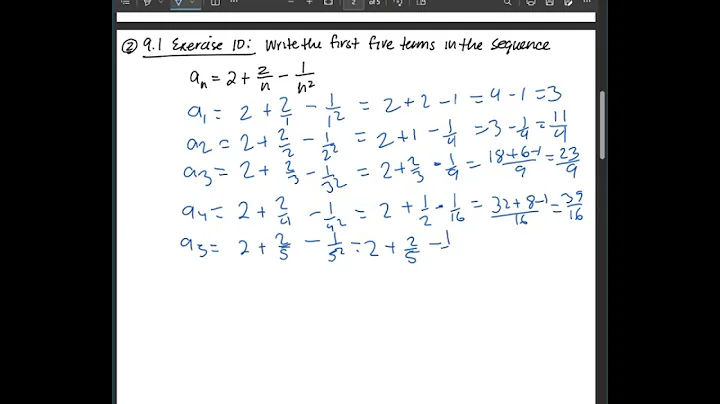 ② 9.1 Exercise 10: Write the first five terms in the sequence
aₙ = 2 + 2/n - 1/n²
a₁ = 2 + 2/1 - 1/1² = 2 + 2 - 1 = 4 - 1 = 3
a₂ = 2 + 2/2 - 1/2² = 2 + 1 - 1/4 = 3 - 1/4 = 11/4
a₃ = 2 + 2/3 - 1/3² = 2 + 2/3 - 1/9 = (18+6-1)/9 = 23/9
a₄ = 2 + 2/4 - 1/4² = 2 + 1/2 - 1/16 = (32+8-1)/16 = 39/16
a₅ = 2 + 2/5 - 1/5² = 2 + 2/5 - 1